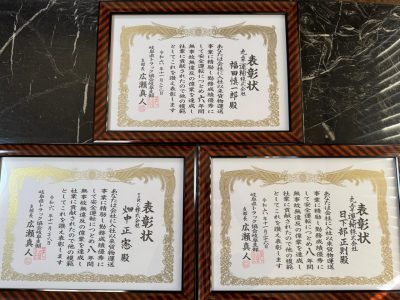 表彰状
丸幸運輸株式会社
福田慎一郎殿
あなたは会社に入社以来貨物運送
事業に精励し勤務成績優秀に
して安全運転につとめ六八年間
無事故無違反の偉業を達成し
社業に貢献されたので他の模範
としてこれを讃え表彰します
令和六年十一月二六日
岐阜県トラック協会岐阜支部
支部長 広瀬真人
表彰状
株式会社
畑中正憲殿
あなたは会社に入社以来貨物運送
事業に精励し勤務成績優秀に
して安全運転につとめ八年間
無事故無違反の偉業を達成し
社業に貢献されたので他の模範
としてこれを讃え表彰します
令和六年十一月二六日
岐阜県トラック協会岐阜支部
支部長 広瀬真人
表彰状
丸幸運輸株式会社
日下部正則殿
あなたは会社に入社以来貨物運送
事業に精励し勤務成績優秀に
して安全運転につとめ八年間
無事故無違反の偉業を達成し
社業に貢献されたので他の模範
としてこれを讃え表彰します
令和六年十一月二六日
岐阜県トラック協会岐阜支部
支部長 広瀬真人